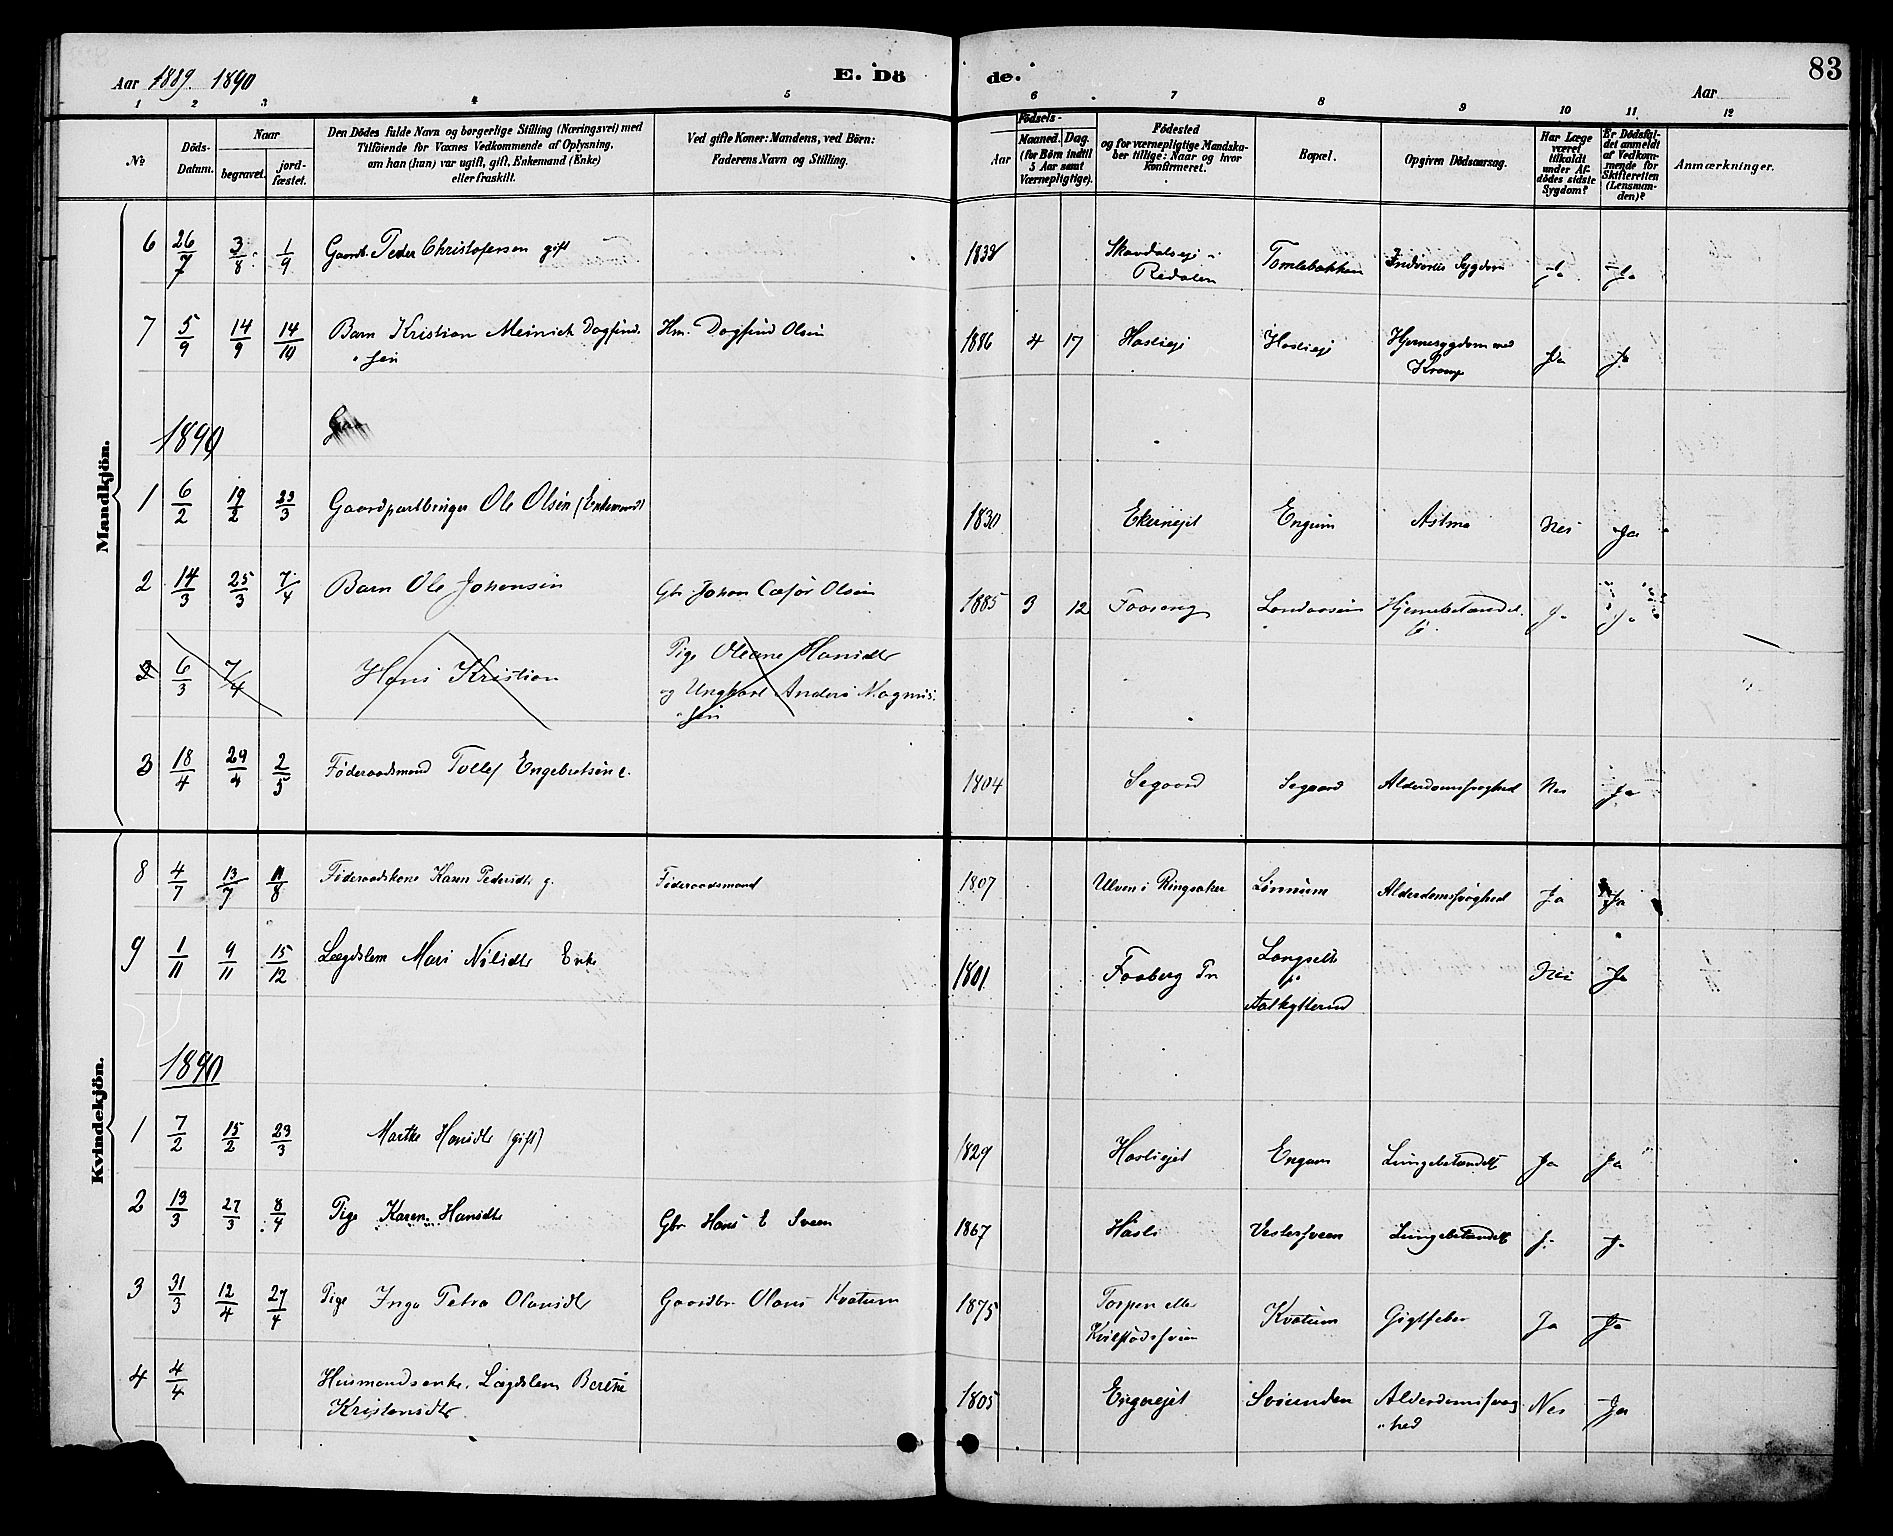 Aar 1889. 1890
E. Dö
de.
Aar
83
1 2 3 4 5 6 7 8 9 10 11 12
No
Döds-
Datum.
Naar
begravet.
jord-
fæstet.
Den Dödes fulde Navn og borgerlige Stilling (Næringsvei) med
Tilföiende for Voxnes Vedkommende af Oplysning,
om han (hun) var ugift, gift, Enkemand (Enke)
eller fraskilt.
Ved gifte Koner: Mandens, ved Börn:
Faderens Navn og Stilling.
Födsels-
Aar
Maaned. Dag.
(for Börn indtil
5 Aar samt
Værnepligtige).
Födested
og for værnepligtige Mandska-
ber tillige: Naar og hvor
konfirmeret.
Bopæl.
Opgiven Dödsaarsag.
Har Læge
været
tilkaldt
under Af-
dödes sidste
Sygdom?
Er Dödsfal-
det anmeldt
af Vedkom-
mende for
Skifteretten
(Lensman-
den)?
Anmærkninger.
Mandkjön.
6 26/7 3/8 1/9 Gaardb. Peder Christofersen gift 1832 Skavdalseje i Tomlebakken Indvortes Sygdom Ja Ja
Redalen
7 5/9 14/9 14/10 Barn Kristian Meinich Dagfind. Hm. Dagfind Olsen 1886 4 17 Haslieje Haslieje Hjernesygdom med Ja Ja
"sen Kramp
1890
1 6/2 19/2 23/3 Gaardpartbruger Ole Olsen (Enkemand) 1830 Ekernejet Engum Astma Nei Ja
2 14/3 25/3 7/4 Barn Ole Johansen Gbr Johan Olsen 1885 3 12 Faaseng Hjernebetændel. Ja Ja
2 6/3 7/4 Hans Kristian Pige Oleane Hansdtr
og Ungkarl Anders Magnus
"sen
3 18/4 29/4 2/5 Føderaadsmand Tollef Engebretsen e. 1804 Segaard Segaard Alderdomssvaghed Nei Ja
Kvindekjön.
8 4/7 13/7 11/8 Føderaadskone Karen Pedersdtr g. Føderaadsmand 1807 Ulven i Ringsaker Lønnum Alderdomssvaghed Ja Ja
9 1/11 9/11 15/12 Lægdslem Mari Nilsdtr Enke 1801 Faaberg Pr Langset Nei Ja
1890
1 7/2 15/2 23/3 Marthe Hansdtr (gift) 1829 Hasliejet Engum Lungebetændelse Ja Ja
2 13/3 27/3 8/4 Pige Karen Hansdtr Gbr Hans E Sveen 1867 Hasli Vestersveen Lungebetændelse Ja Ja
3 31/3 12/4 27/4 Pige Inga Petra Olausdtr Gaardbr. Olaus Kvatum 1875 Torpen eller Kvatum Gigtfeber Ja Ja
Kvilstadsveen
4 4/4 Husmandsenke, Lægdslem Berthe 1805 Engerejet Sveunden Alderdomssvag Nei Ja
Kristensdtr. "hed